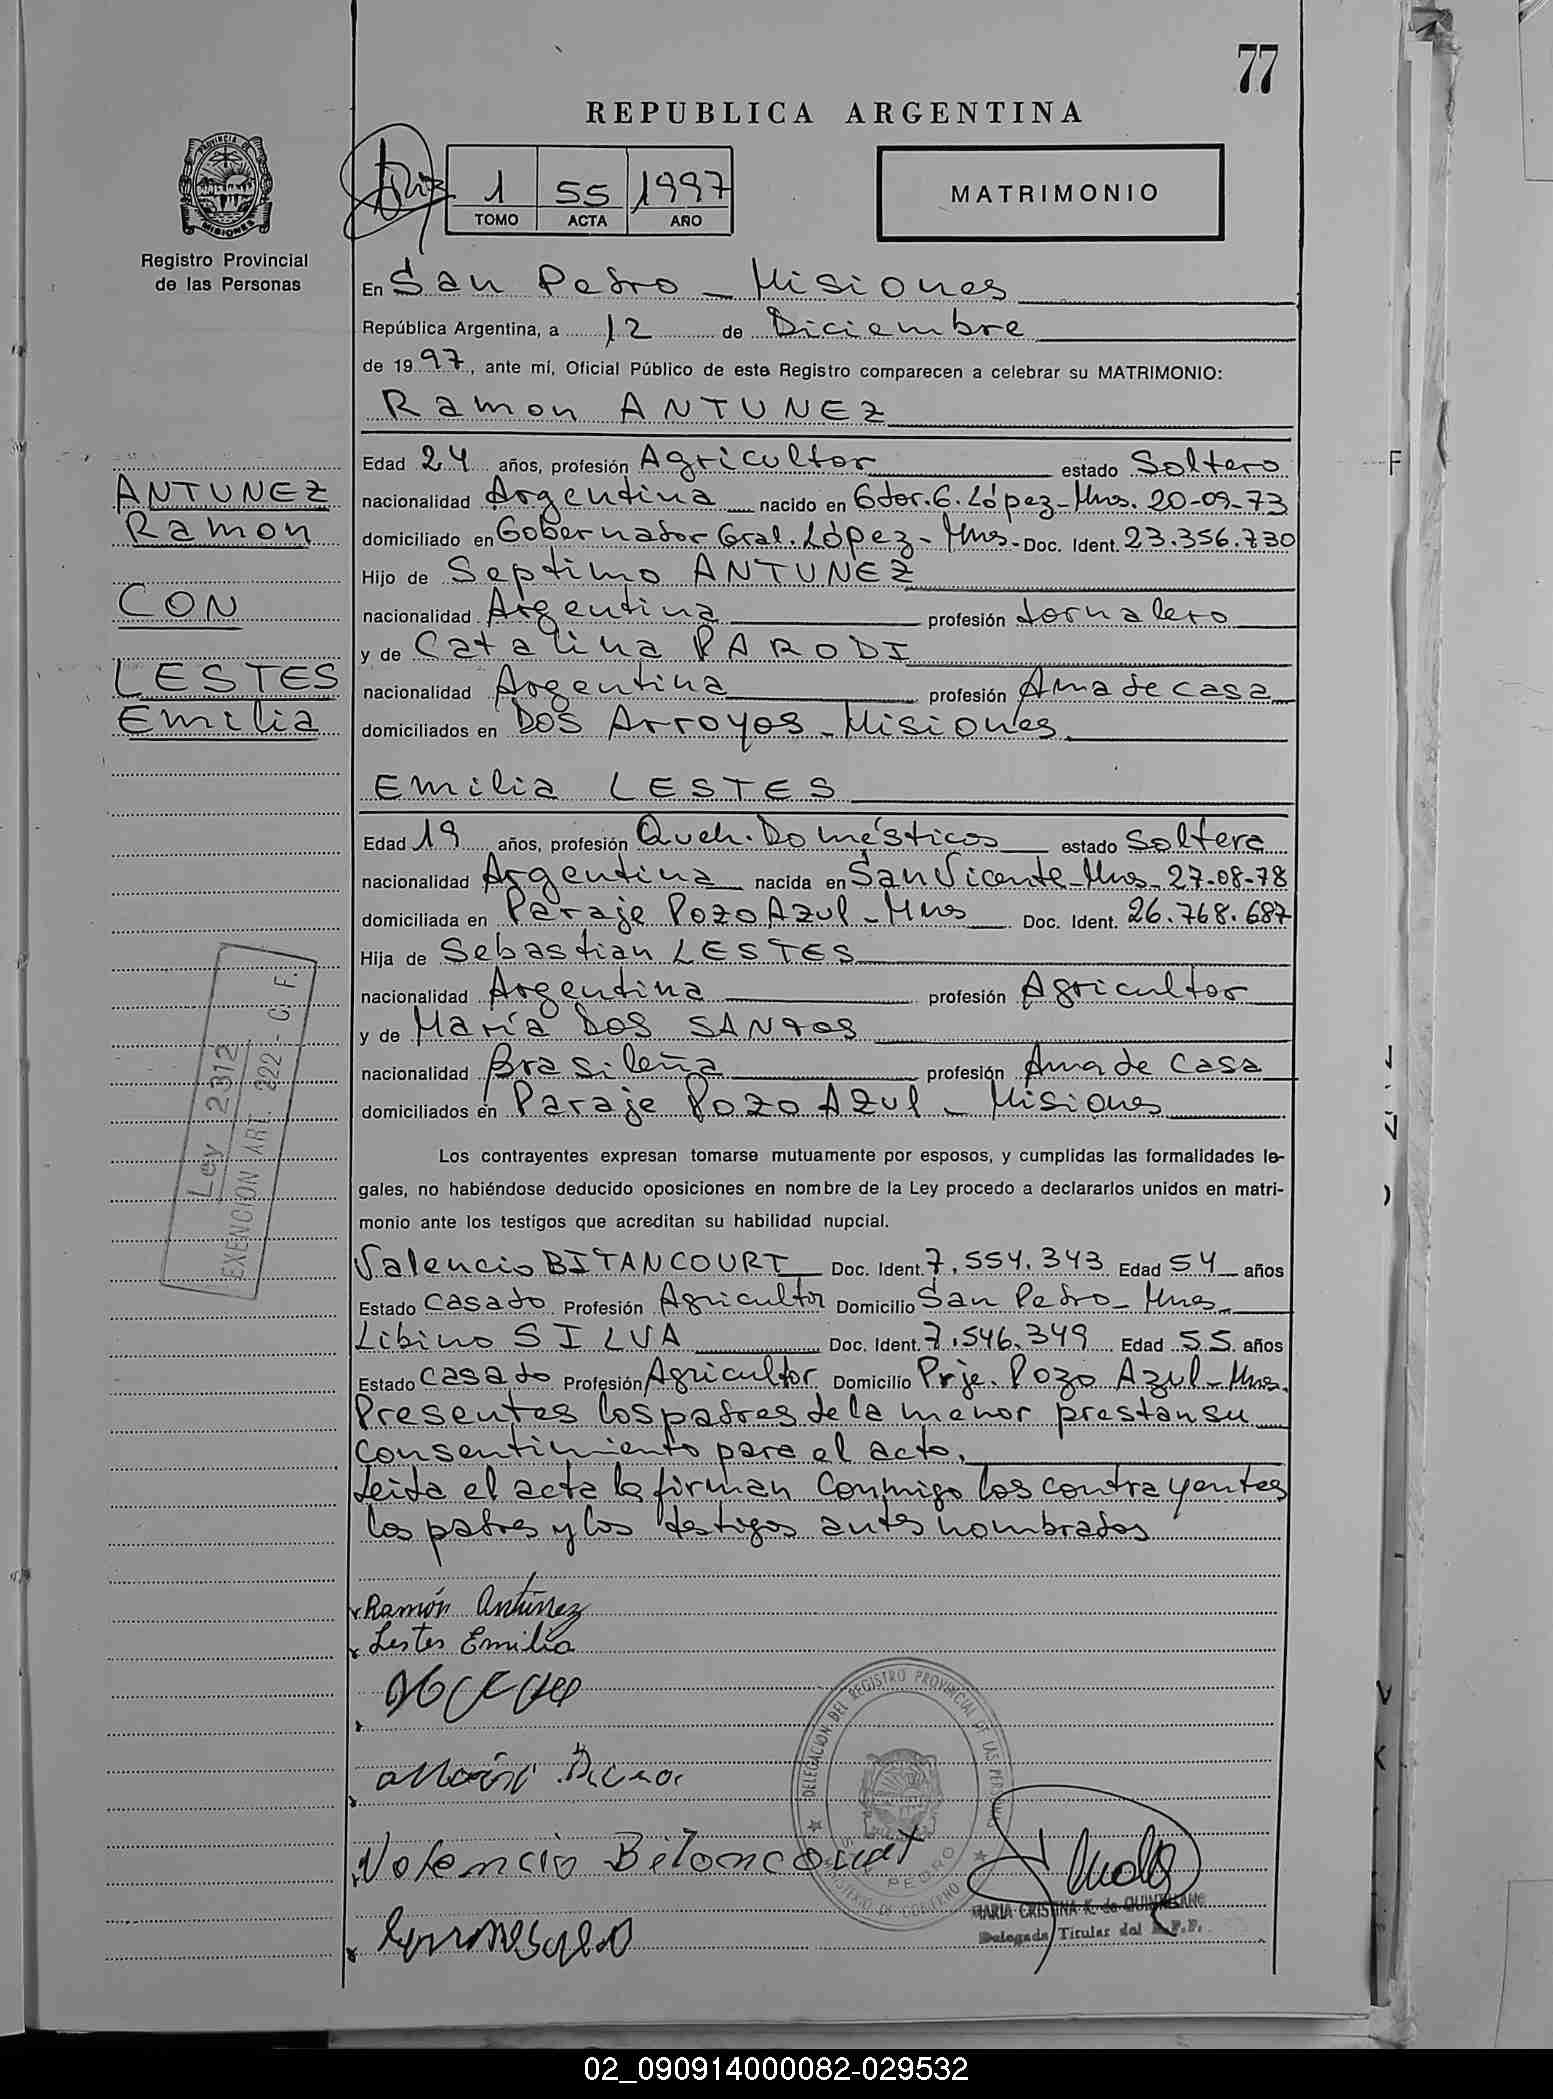 77
REPUBLICA ARGENTINA
PROVINCIA DE
MISIONES
Registro Provincial
de las Personas
1 55 1997
TOMO ACTA AÑO
MATRIMONIO
En San Pedro - Misiones
República Argentina, a 12 de Diciembre
de 1997, ante mí, Oficial Público de este Registro comparecen a celebrar su MATRIMONIO:
Ramon ANTUNEZ
ANTUNEZ
Ramon
CON
LESTES
Emilia
Edad 24 años, profesión Agricultor estado Soltero
nacionalidad Argentina nacido en Gdor. G. López - Mnes. 20-09-73
domiciliado en Gobernador Gral. López - Mnes - Doc. Ident. 23.356.730
Hijo de Septimo ANTUNEZ
nacionalidad Argentina profesión Jornalero
y de Catalina PARODI
nacionalidad Argentina profesión Ama de casa
domiciliados en Dos Arroyos - Misiones
Emilia LESTES
Edad 19 años, profesión Queh. Domésticos estado Soltera
nacionalidad Argentina nacida en San Vicente - Mnes - 27-08-78
domiciliada en Paraje Pozo Azul - Mnes Doc. Ident. 26.768.687
Hija de Sebastian LESTES
nacionalidad Argentina profesión Agricultor
y de María DOS SANTOS
nacionalidad Brasileña profesión Ama de Casa
domiciliados en Paraje Pozo Azul - Misiones
Ley 2312
EXENCION ART. 222 - C. F.
Los contrayentes expresan tomarse mutuamente por esposos, y cumplidas las formalidades le-
gales, no habiéndose deducido oposiciones en nombre de la Ley procedo a declararlos unidos en matri-
monio ante los testigos que acreditan su habilidad nupcial.
Valencio BITANCOURT Doc. Ident. 7.554.343 Edad 54 años
Estado Casado Profesión Agricultor Domicilio San Pedro - Mnes.
Libino SILVA Doc. Ident. 7.546.349 Edad 55 años
Estado Casado Profesión Agricultor Domicilio Prje. Pozo Azul - Mnes.
Presentes los padres de la menor prestan su
consentimiento para el acto.
Leida el acta la firman conmigo los contrayentes
los padres y los testigos antes nombrados
Ramón Antúnez
Lestes Emilia
Valencio Bitancourt
DELEGACION DEL REGISTRO PROVINCIAL DE LAS PERSONAS
SAN PEDRO
MINISTERIO DE GOBIERNO
MARIA CRISTINA K. de QUINTELLANO
Delegada Titular del R.P.P.
02_090914000082-029532